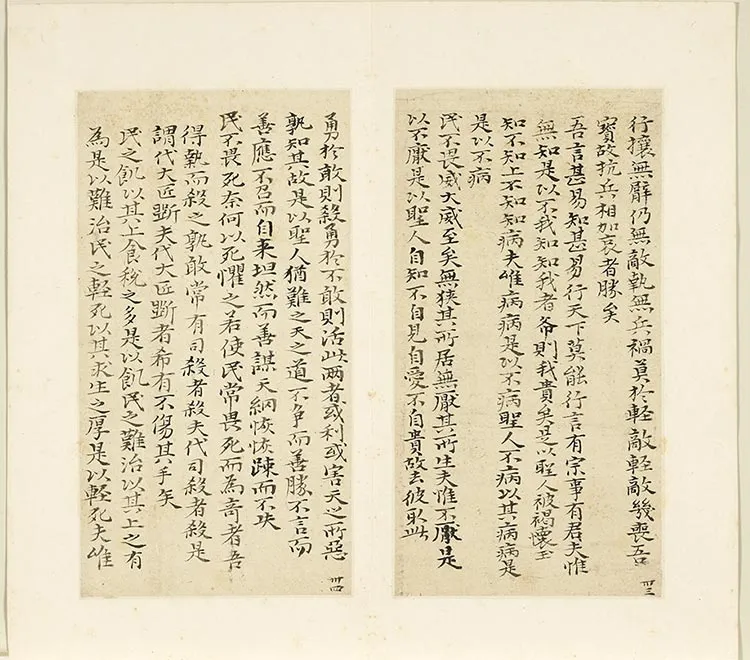 行攘無臂仍無敵執無兵禍莫於輕敵輕敵幾喪吾
寶故抗兵相加哀者勝矣
吾言甚易知甚易行天下莫能行言有宗事有君夫惟
無知是以不我知知我者希則我貴矣是以聖人被褐懷玉
知不知上不知知病夫唯病病是以不病聖人不病以其病病是
是以不病
民不畏威大威至矣無狹其所居無厭其所生夫惟不厭是
以不厭是以聖人自知不自見自愛不自貴故去彼取此
卅三
勇於敢則殺勇於不敢則活此兩者或利或害天之所惡
孰知其故是以聖人猶難之天之道不争而善勝不言而
善應不召而自来坦然而善謀天網恢恢踈而不失
民不畏死奈何以死懼之若使民常畏死而為奇者吾
得執而殺之孰敢常有司殺者殺夫代司殺者殺是
謂代大匠斲夫代大匠斲者希有不傷其手矣
民之飢以其上食税之多是以飢民之難治以其上之有
為是以難治民之輕死以其求生之厚是以輕死夫唯
卅四